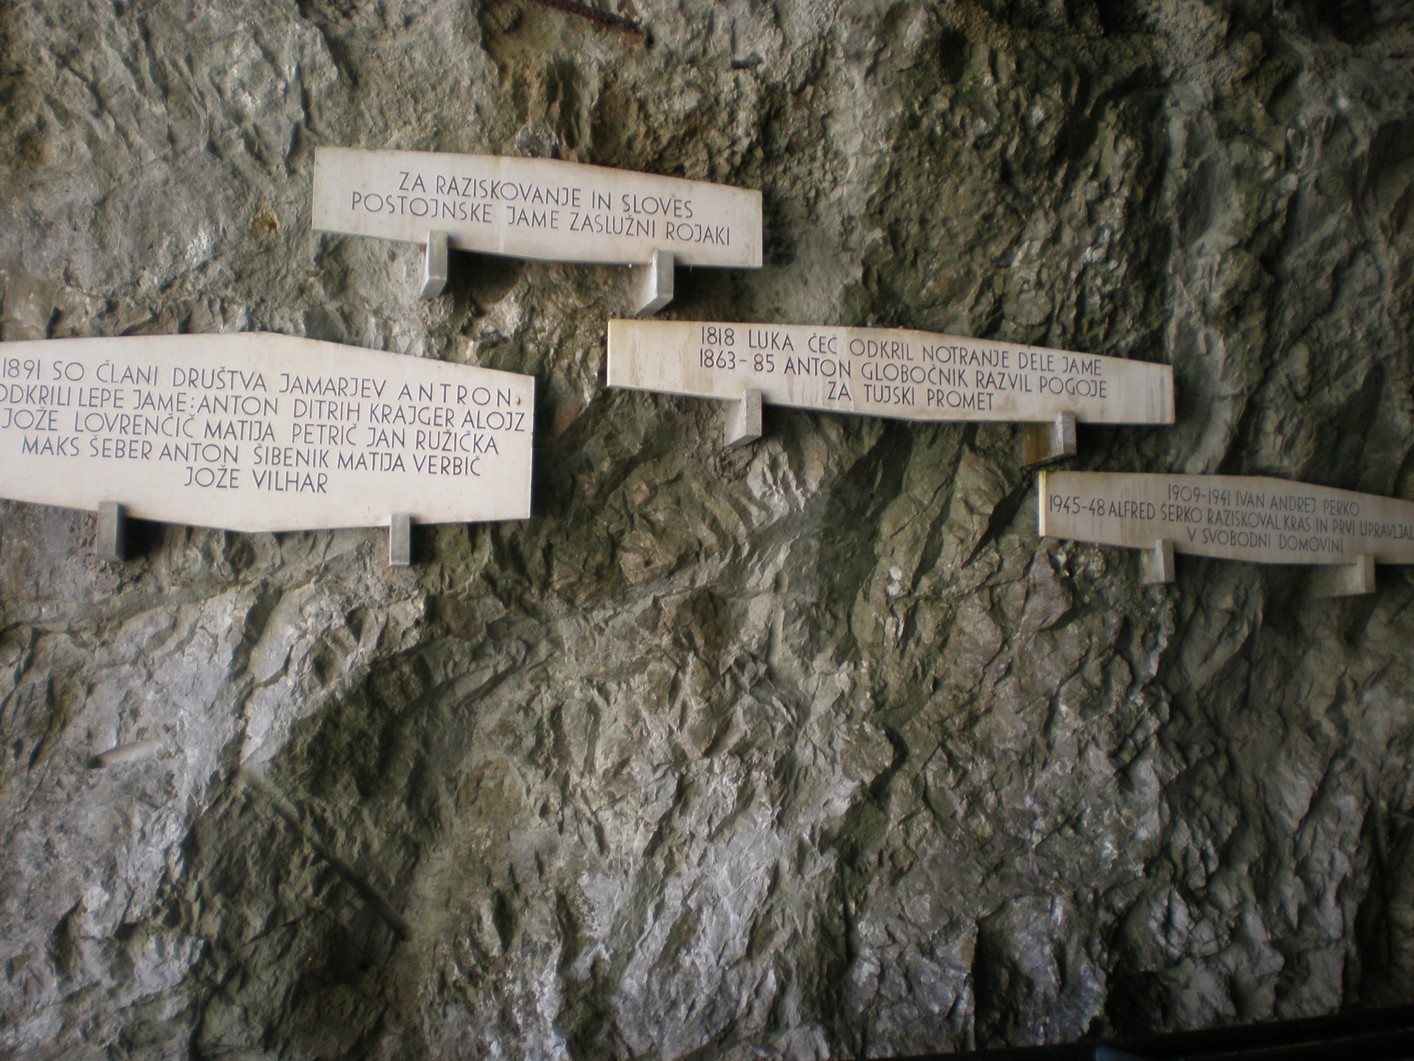 ZA RAZISKOVANJE IN SLOVES
POSTOJNSKE JAME ZASLUŽNI ROJAKI
1891 SO ČLANI DRUŠTVA JAMARJEV ANTRON
ODKRILI LEPE JAME: ANTON DITRIH KRAJGER ALOJZ
JOŽE LOVRENČIČ MATIJA PETRIČ JAN RUŽIČKA
MAKS ŠEBER ANTON ŠIBENIK MATIJA VERBIČ
JOŽE VILHAR
1818 LUKA ČEČ ODKRIL NOTRANJE DELE JAME
1863-85 ANTON GLOBOČNIK RAZVIL POGOJE
ZA TUJSKI PROMET
1909-1941 IVAN ANDREJ PERKO
1945-48 ALFRED ŠERKO RAZISKOVAL KRAS IN PRVI UPRAVLJAL
V SVOBODNI DOMOVINI